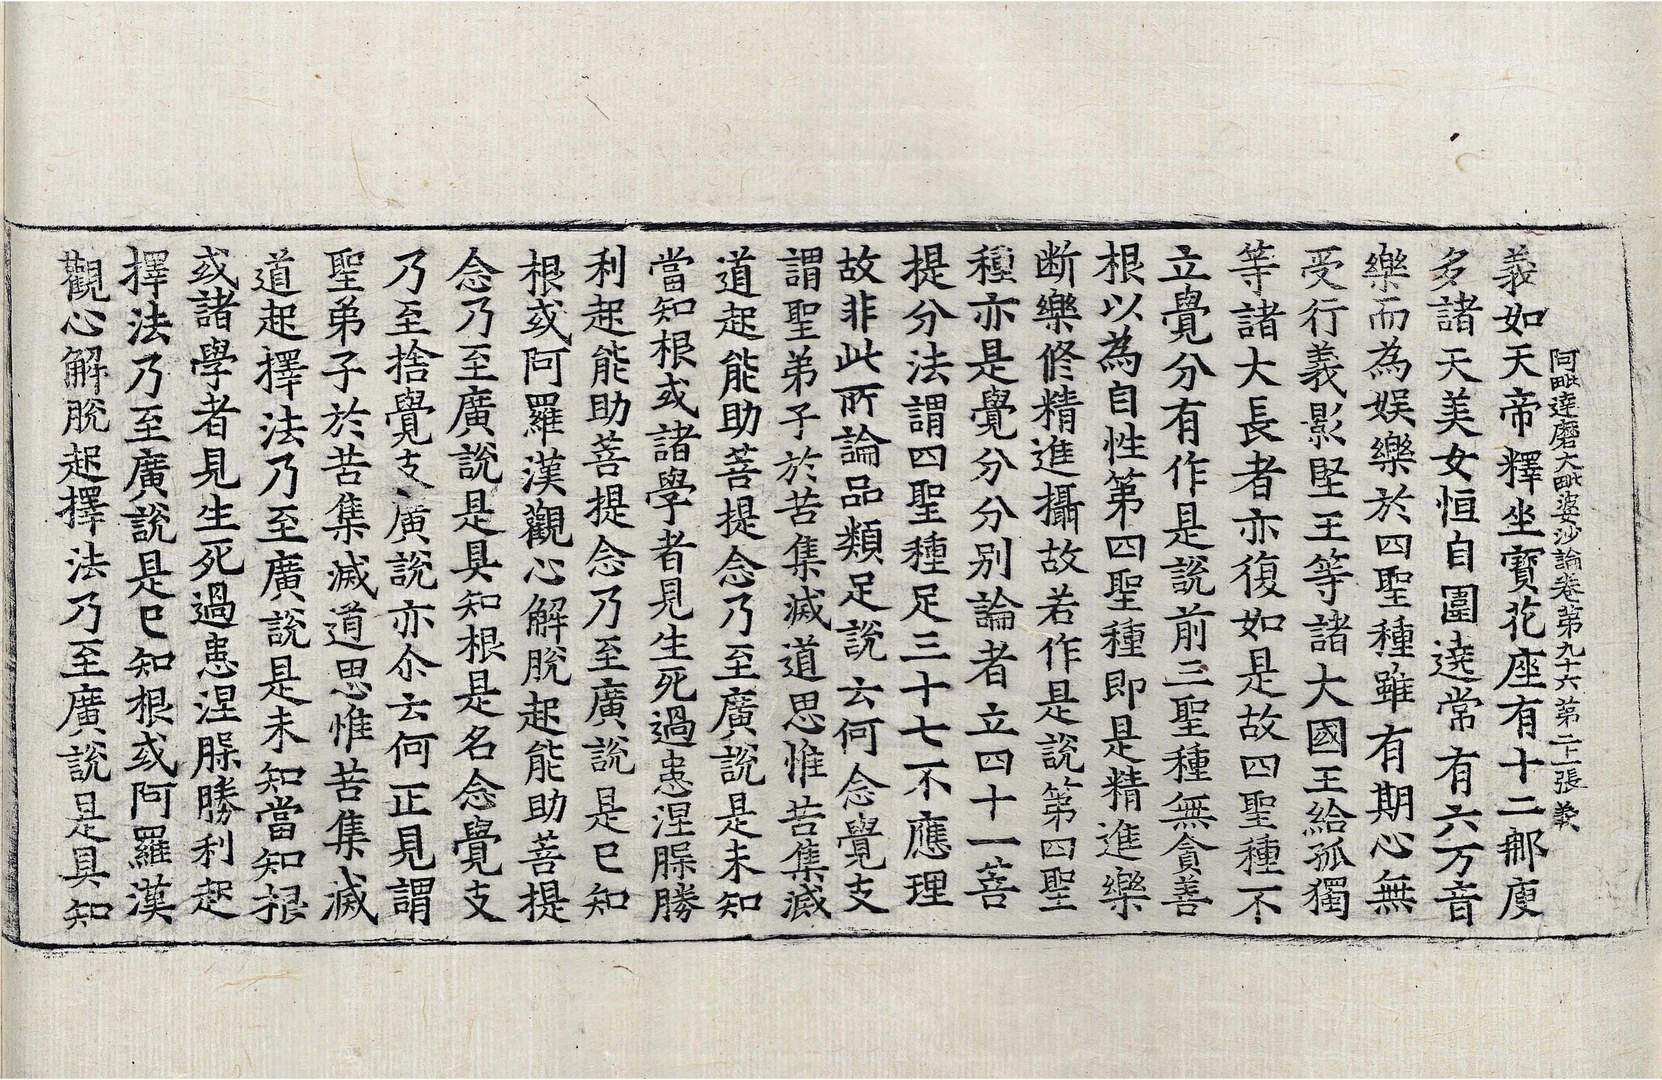 阿毗達磨大毗婆沙論卷第九十六 第二十一張 義
義如天帝釋坐寶花座有十二那庾
多諸天美女恒自圍遶常有六万音
樂而為娛樂於四聖種雖有期心無
受行義影堅王等諸大國王給孤獨
等諸大長者亦復如是故四聖種不
立覺分有作是說前三聖種無貪善
根以為自性第四聖種即是精進樂
断樂修精進攝故若作是說第四聖
種亦是覺分分別論者立四十一菩
提分法謂四聖種足三十七不應理
故非此所論品類足說云何念覺支
謂聖弟子於苦集滅道思惟苦集滅
道起能助菩提念乃至廣說是未知
當知根或諸學者見生死過患涅槃勝
利起能助菩提念乃至廣說是已知
根或阿羅漢觀心解脫起能助菩提
念乃至廣說是具知根是名念覺支
乃至捨覺支廣說亦尒云何正見謂
聖弟子於苦集滅道思惟苦集滅
道起擇法乃至廣說是未知當知根
或諸學者見生死過患涅槃勝利起
擇法乃至廣說是已知根或阿羅漢
觀心解脫起擇法乃至廣說是具知